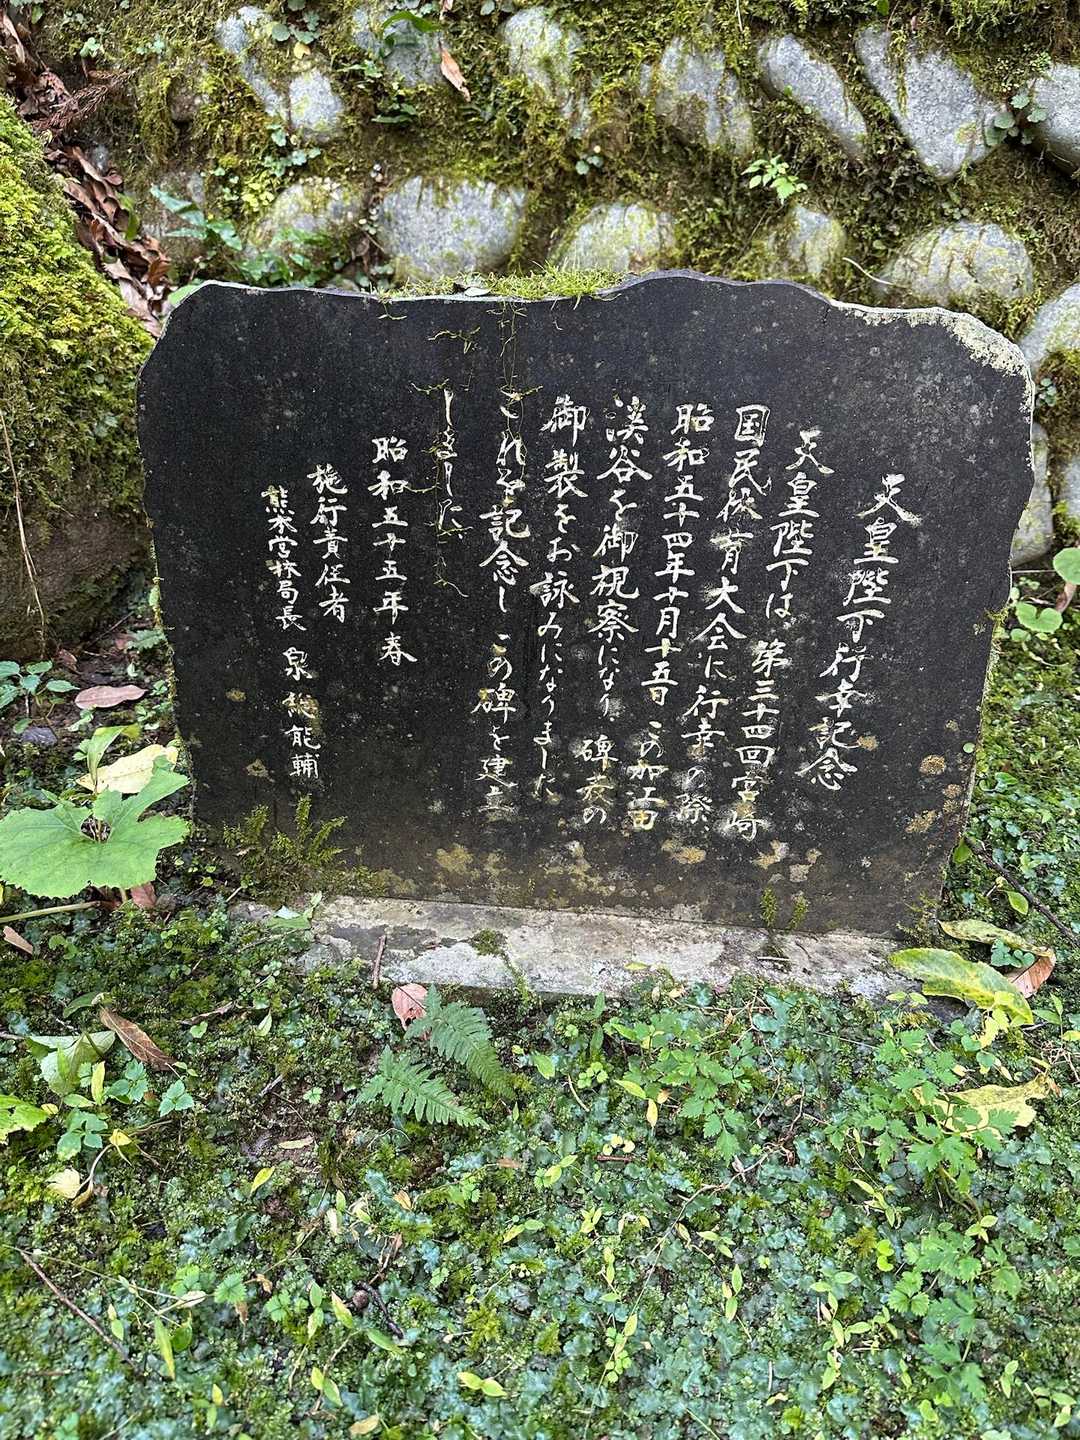 天皇陛下行幸記念
天皇陛下は、第三十四回宮崎
国民体育大会に行幸の際、
昭和五十四年十月十五日この加江田
渓谷を御視察になり、碑表の
御製をお詠みになりました
これを記念しこの碑を建立
しました
昭和五十五年春
施行責任者
熊本営林局長 泉 能輔